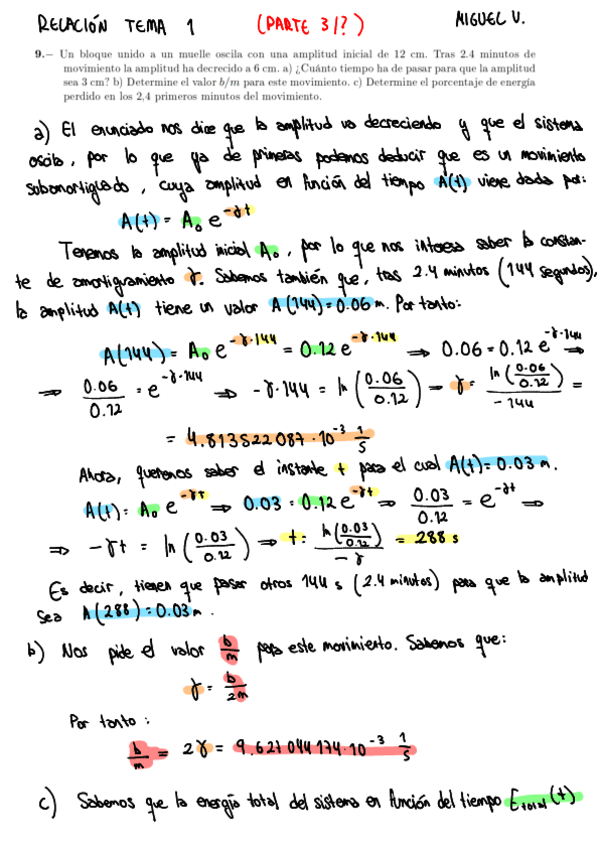 RELACIÓN TEMA 1 (PARTE 3/?) MIGUEL V.
9.— Un bloque unido a un muelle oscila con una amplitud inicial de 12 cm. Tras 2.4 minutos de
movimiento la amplitud ha decrecido a 6 cm. a) ¿Cuánto tiempo ha de pasar para que la amplitud
sea 3 cm? b) Determine el valor b/m para este movimiento. c) Determine el porcentaje de energía
perdido en los 2,4 primeros minutos del movimiento.
a) El enunciado nos dice que la amplitud va decreciendo y que el sistema
oscila, por lo que ya de primeras podemos deducir que es un movimiento
subamortiguado, cuya amplitud en función del tiempo A(t) viene dada por:
A(t) = A₀ e^-γt
Tenemos la amplitud inicial A₀, por lo que nos interesa saber la constan-
te de amortiguamiento γ. Sabemos también que, tras 2.4 minutos (144 segundos),
la amplitud A(t) tiene un valor A(144) = 0.06 m. Por tanto:
A(144) = A₀ e^-γ·144 = 0.12 e^-γ·144 ⇒ 0.06 = 0.12 e^-γ·144 ⇒
⇒ 0.06/0.12 = e^-γ·144 ⇒ -γ·144 = ln(0.06/0.12) ⇒ γ = ln(0.06/0.12)/-144 =
= 4.813522087·10^-3 1/s
Ahora, queremos saber el instante t para el cual A(t) = 0.03 m.
A(t) = A₀ e^-γt ⇒ 0.03 = 0.12 e^-γt ⇒ 0.03/0.12 = e^-γt ⇒
⇒ -γt = ln(0.03/0.12) ⇒ t = ln(0.03/0.12)/-γ = 288 s
Es decir, tienen que pasar otros 144 s (2.4 minutos) para que la amplitud
sea A(288) = 0.03 m.
b) Nos pide el valor b/m para este movimiento. Sabemos que:
γ = b/2m
Por tanto:
b/m = 2γ = 9.627044174·10^-3 1/s
c) Sabemos que la energía total del sistema en función del tiempo E_total(t)